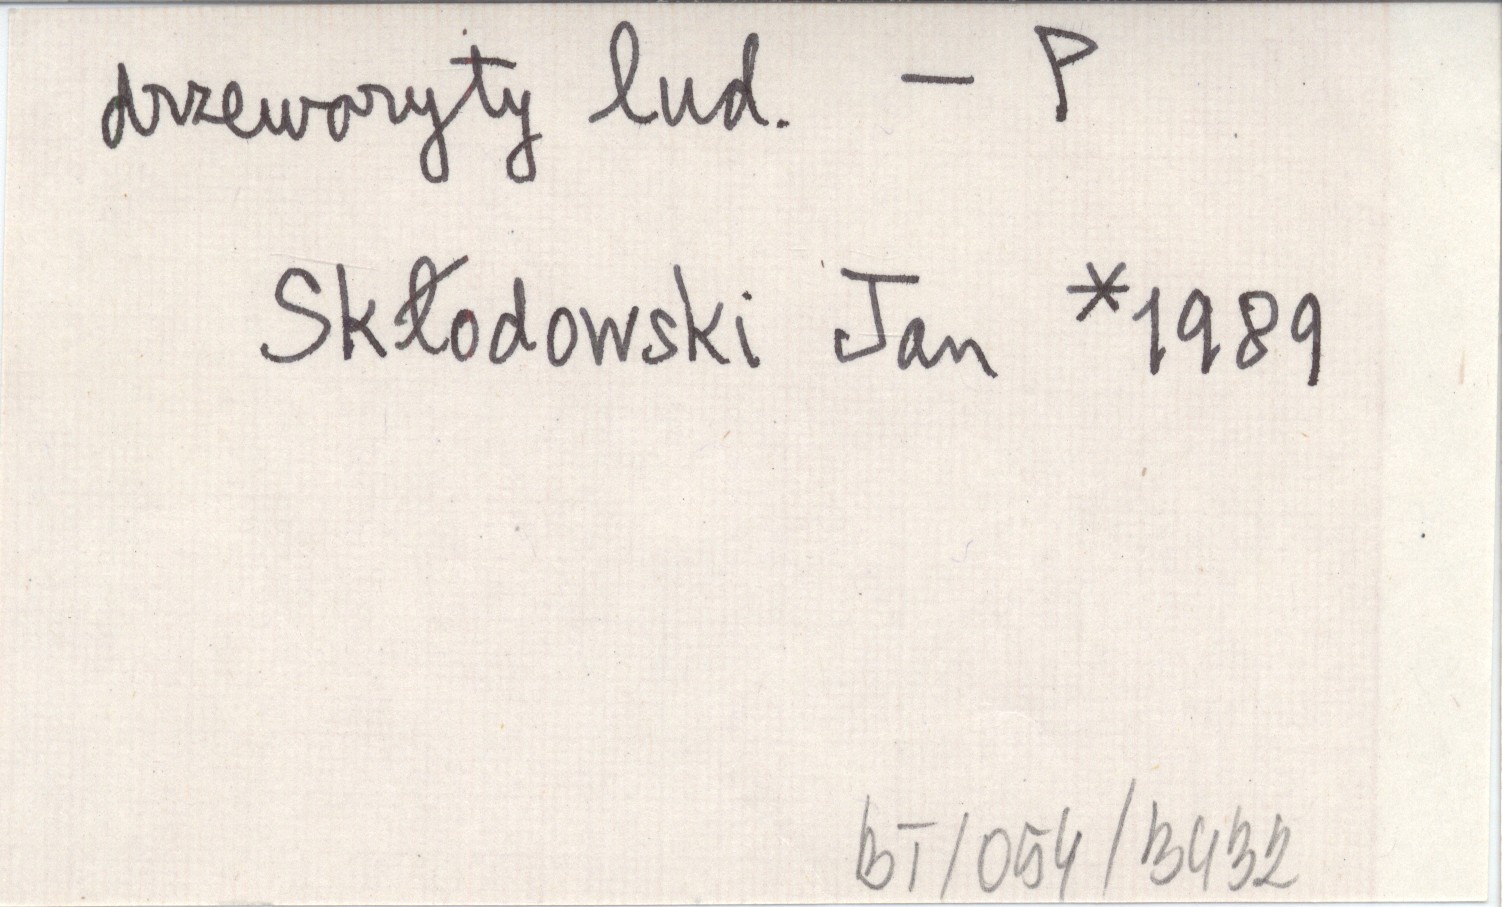 drzeworyty lud. – P
Skłodowski Jan *1989
BT/054/3432